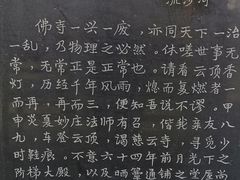 流沙河
佛寺一兴一废，亦同天下一治
一乱，乃物理之必然。休嗟世事无
常，无常正是正常也。请看云顶香
灯，历经千年风雨，熄而复燃者一
而再，再而三，便知吾说不谬。甲
申炎夏妙庄法师有召，偕我亲友八
九，车登云顶，谒慈云寺，寻觅少
时鞋痕。不意六十四年前月光下之
阶梯大殿，以及晒薯通铺之堂屋尚